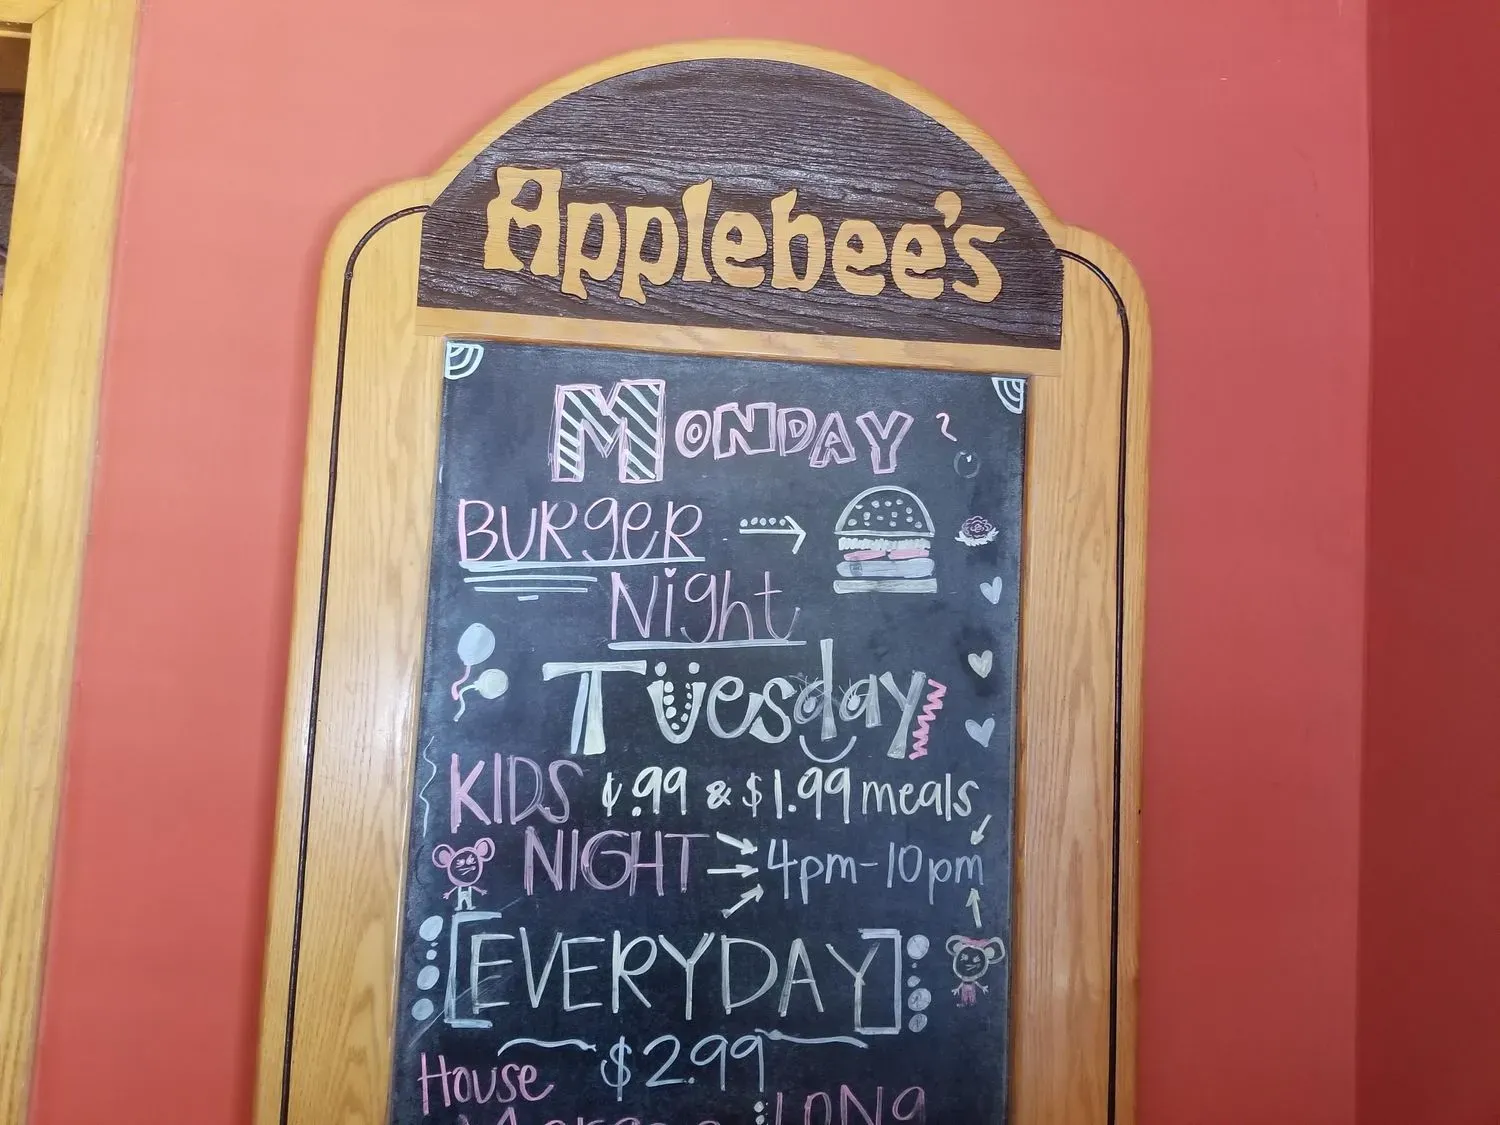 Applebee's
MONDAY
BURgER
Night
Tuesday
KIDS ¢.99 & $1.99 meals
NIGHT 4pm-10pm
[EVERYDAY]
$2.99
House
LONg